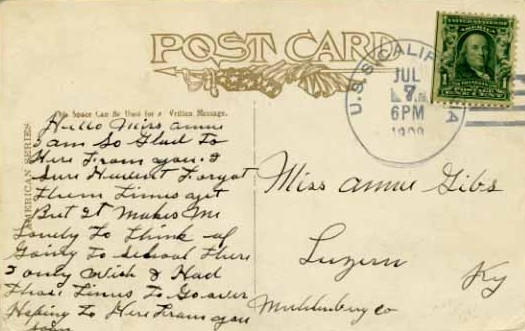 POST CARD
This Space Can Be Used for a Written Message.
AMERICAN SERIES
U.S.S. CALIFORNIA
JUL
7
6PM
1909
Hello Miss annie
I am So Glad To
Here From you. I
Sure Havent Forgot
Them Times yet
But It Makes Me
Lonely To Think of
Going To School There
I only Wish I Had
Those Times To Go over
Hoping To Here From you
soon
Miss annie Gibs
Luzern
Ky
Muhlenburg co